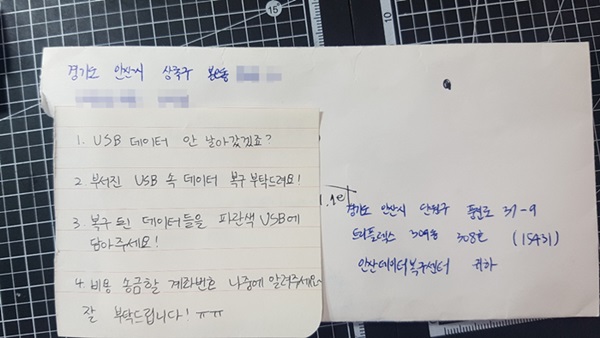 경기도 안산시 상록구 본오동
1. USB 데이터 안 날아갔겠죠?
2. 부서진 USB 속 데이터 복구 부탁드려요!
3. 복구 된 데이터들을 파란색 USB에
담아주세요!
4. 비용 송금할 계좌번호 나중에 알려주세요~
잘 부탁드립니다! ㅠㅠ
경기도 안산시 단원구 풍전로 37-9
트리플렉스 309동 308호 (15431)
안산데이터복구센터 귀하